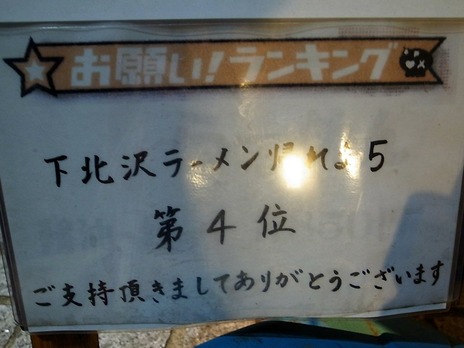 お願い!ランキング
下北沢ラーメン帰れま5
第4位
ご支持頂きましてありがとうございます